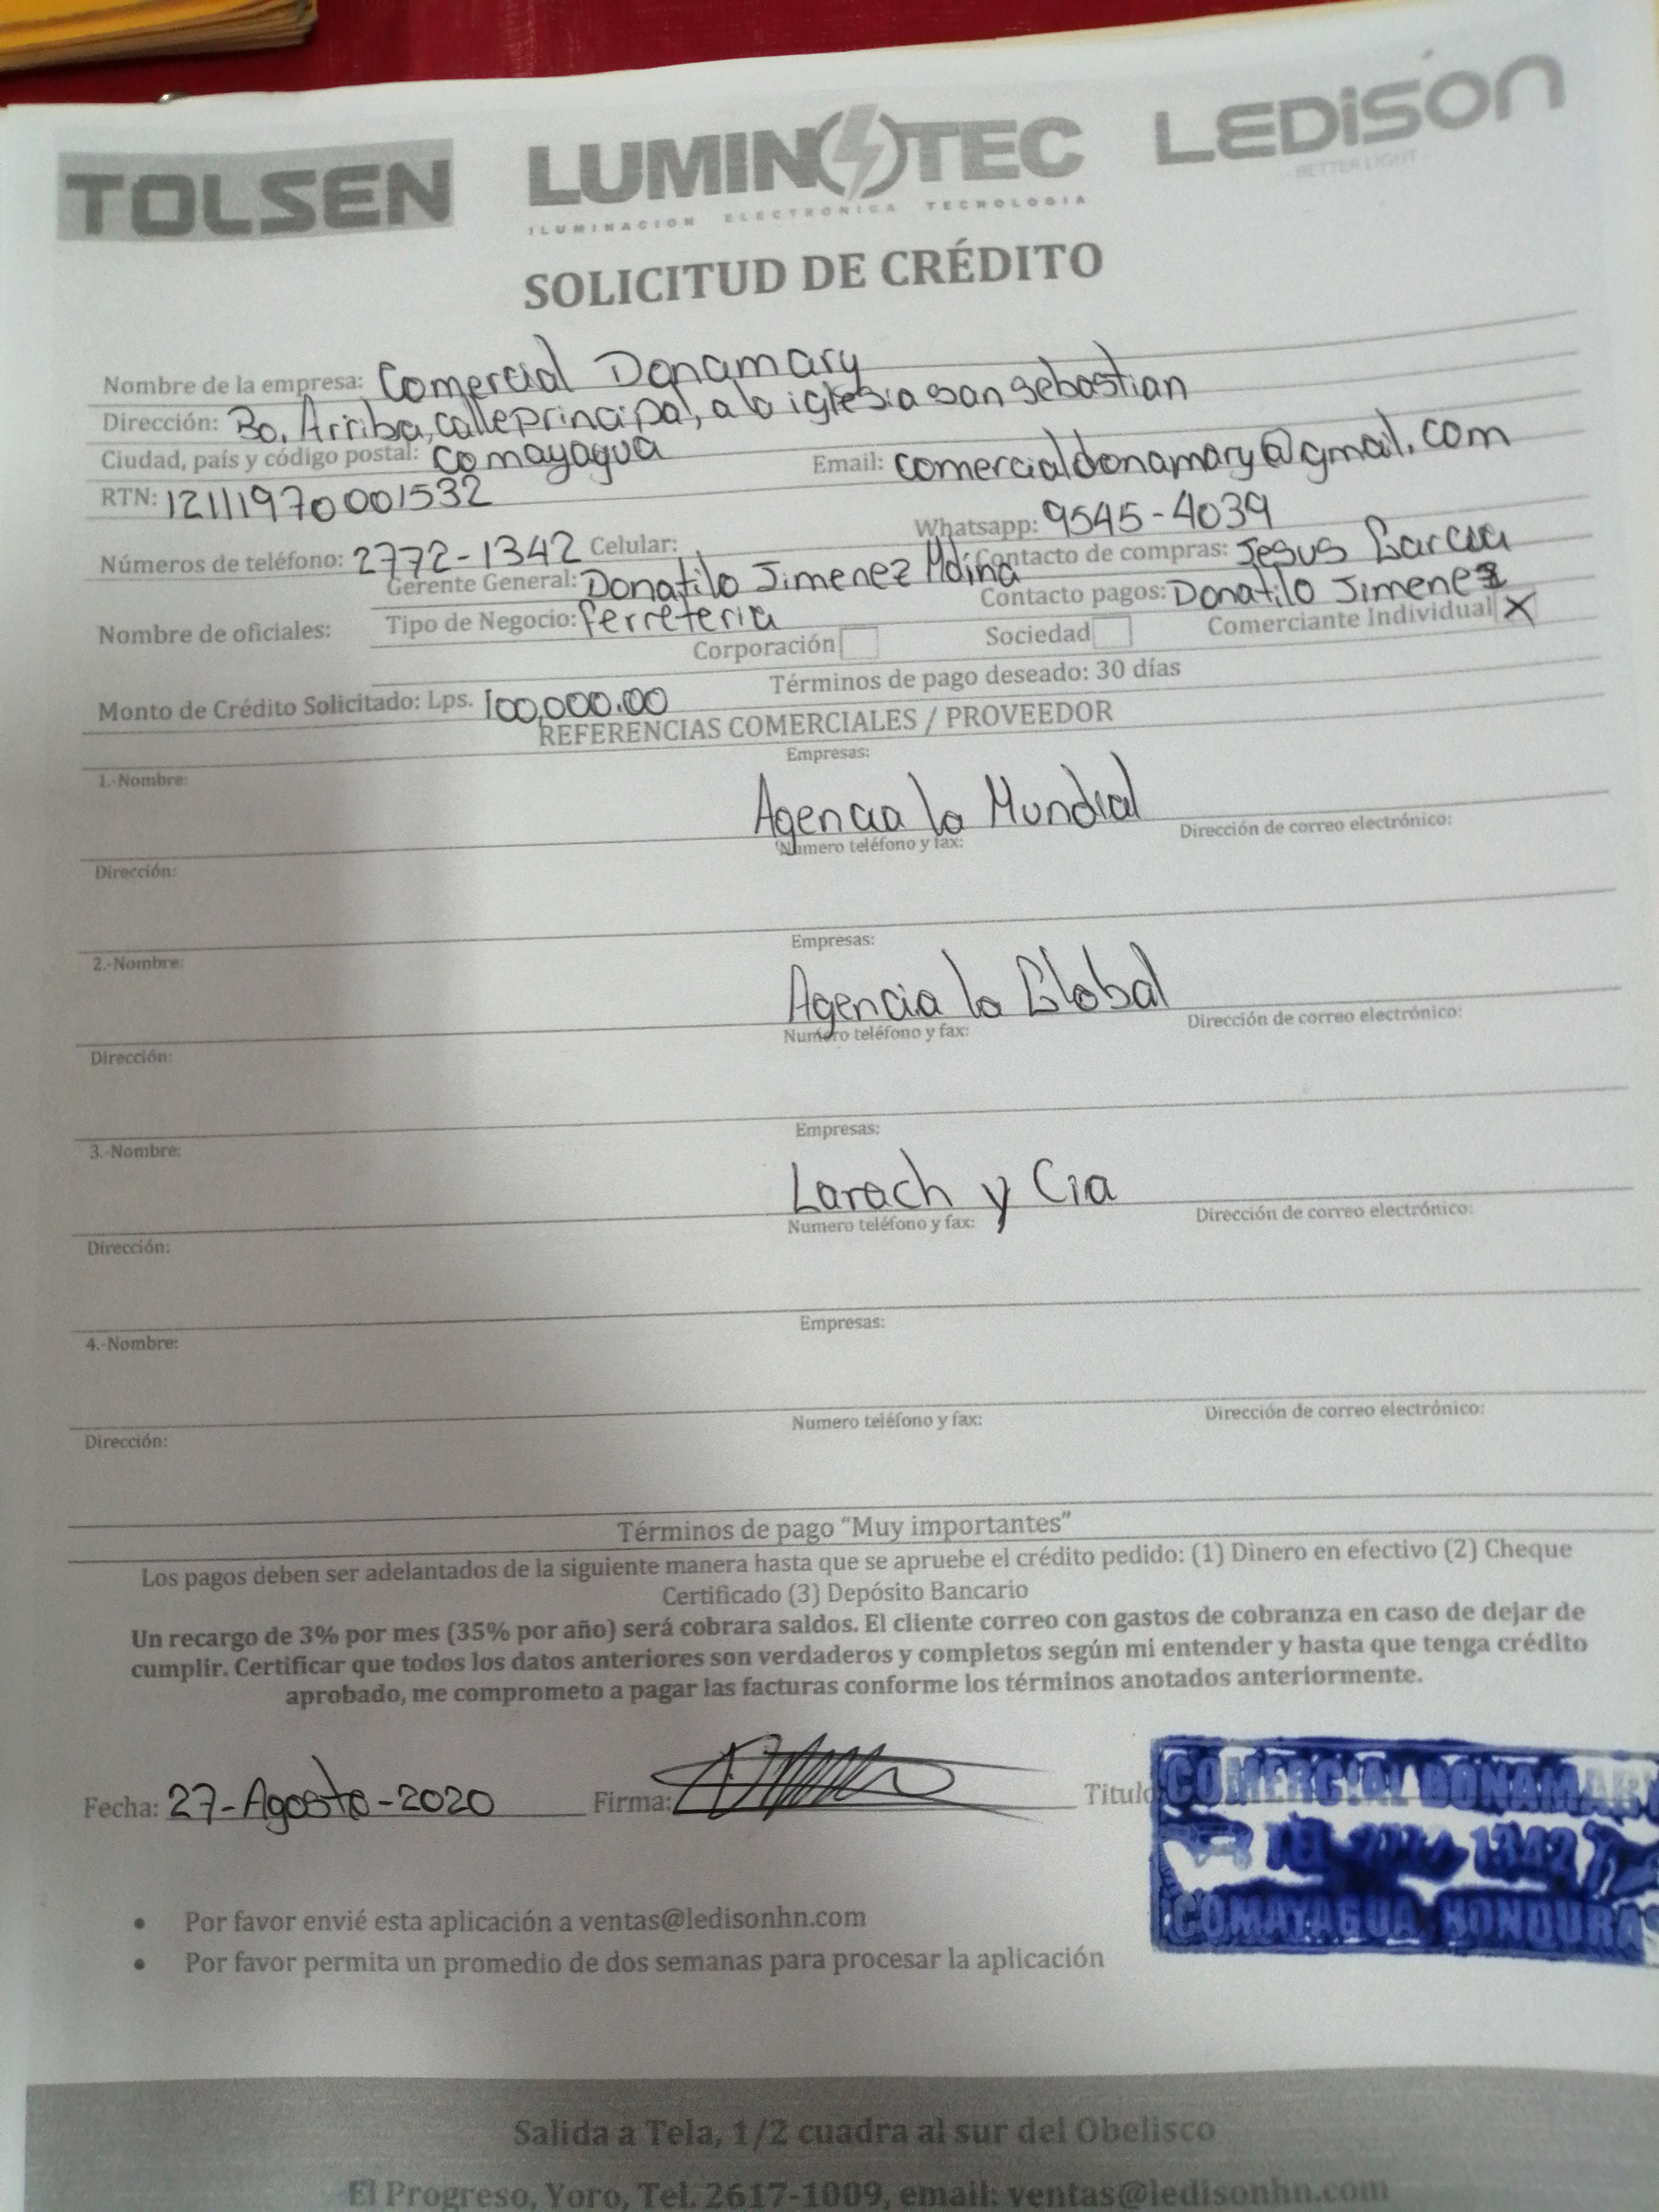 TOLSEN LUMINOTEC LEDISON
ILUMINACION ELECTRONICA TECNOLOGIA BETTER LIGHT
SOLICITUD DE CRÉDITO
Nombre de la empresa: Comercial Donamary
Dirección: Bo. Arriba, calle principal, a la iglesia san sebastian
Ciudad, país y código postal: Comayagua Email: comercialdonamary@gmail.com
RTN: 12111970001532 Whatsapp: 9545-4039
Números de teléfono: 2772-1342 Celular: Contacto de compras: Jesus Garcia
Gerente General: Donatilo Jimenez Mdina Contacto pagos: Donatilo Jimenez
Nombre de oficiales: Tipo de Negocio: ferreteria
Corporación Sociedad Comerciante Individual X
Monto de Crédito Solicitado: Lps. 100,000.00 Términos de pago deseado: 30 días
REFERENCIAS COMERCIALES / PROVEEDOR
1.-Nombre: Empresas:
Agencia la Mundial
Dirección: Numero teléfono y fax: Dirección de correo electrónico:
2.-Nombre: Empresas:
Agencia la Global
Dirección: Numero teléfono y fax: Dirección de correo electrónico:
3.-Nombre: Empresas:
Larach y Cia
Dirección: Numero teléfono y fax: Dirección de correo electrónico:
4.-Nombre: Empresas:
Dirección: Numero teléfono y fax: Dirección de correo electrónico:
Términos de pago “Muy importantes”
Los pagos deben ser adelantados de la siguiente manera hasta que se apruebe el crédito pedido: (1) Dinero en efectivo (2) Cheque
Certificado (3) Depósito Bancario
Un recargo de 3% por mes (35% por año) será cobrara saldos. El cliente correo con gastos de cobranza en caso de dejar de
cumplir. Certificar que todos los datos anteriores son verdaderos y completos según mi entender y hasta que tenga crédito
aprobado, me comprometo a pagar las facturas conforme los términos anotados anteriormente.
Fecha: 27-Agosto-2020 Firma: Titulo
COMERCIAL DONAMAR
TEL 1342
COMAYAGUA, HONDURAS
• Por favor envié esta aplicación a ventas@ledisonhn.com
• Por favor permita un promedio de dos semanas para procesar la aplicación
Salida a Tela, 1/2 cuadra al sur del Obelisco
El Progreso, Yoro, Tel. 2617-1009, email: ventas@ledisonhn.com